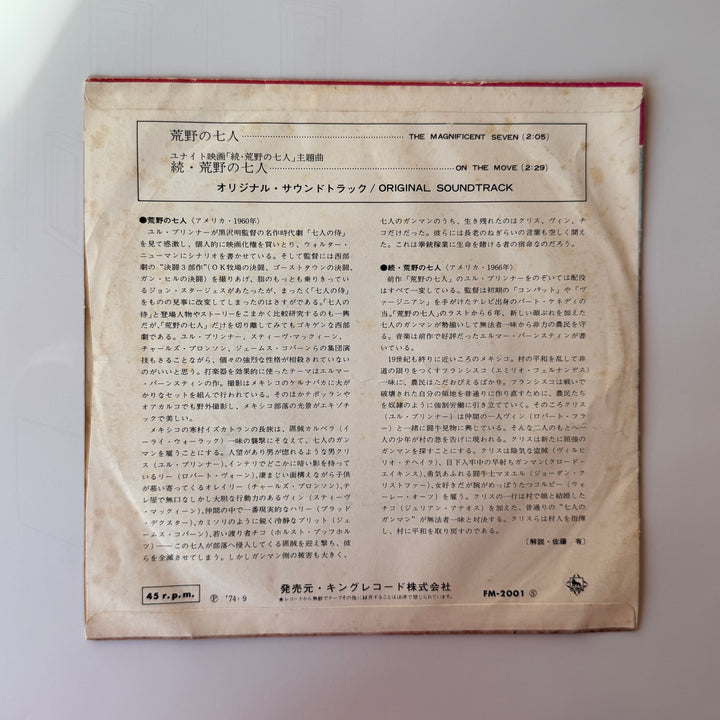 荒野の七人 THE MAGNIFICENT SEVEN (2:05)
ユナイト映画「続・荒野の七人」主題曲
続・荒野の七人 ON THE MOVE (2:29)
オリジナル・サウンドトラック / ORIGINAL SOUNDTRACK
●荒野の七人 (アメリカ・1960年)
ユル・ブリンナーが黒沢明監督の名作時代劇「七人の侍」
を見て感激し、個人的に映画化権を買いとり、ウォルター・
ニューマンにシナリオを書かせている。そして監督には西部
劇の“決闘3部作”(OK牧場の決闘、ゴーストタウンの決闘、
ガン・ヒルの決闘) を撮りあげ、脂のもっとも乗りきってい
るジョン・スタージェスがあたったが、まったく「七人の侍」
をものの見事に改変してしまったのはさすがである。「七人の
侍」と登場人物やストーリーをこまかく比較研究するのも一興
だが、「荒野の七人」だけを切り離してみてもゴキゲンな西部
劇である。ユル・ブリンナー、スティーヴ・マックィーン、
チャールズ・ブロンソン、ジェームス・コバーンらの集団演
技もさることながら、個々の強烈な性格が相殺されていない
のがいいと思う。打楽器を効果的に使ったテーマはエルマ
ー・バーンスティンの作。撮影はメキシコのケルナバカに大が
かりなセットを組んで行われている。そのほかテポッラン
やオアカルコでも野外撮影し、メキシコ部落の光景がエキゾチ
ックで美しい。
メキシコの寒村イズカトランの長旅は、匪賊カルベラ (イ
ーライ・ウォーラック) 一味の襲撃にそなえて、七人のガン
マンを雇うことにする。人望があり男が惚れるような男クリ
ス (ユル・ブリンナー)、インテリでどこかに暗い影を持って
いるリー (ロバート・ヴォーン)、凄まじい面構えながら子供
が慕い寄ってくるオレイリー (チャールズ・ブロンソン)、テ
レ屋で無口なしかし大胆な行動力のあるヴィン (スティーヴ
・マックィーン)、仲間の中で一番現実的なハリー (ブラッド
・デクスター)、カミソリのように鋭く冷静なブリット (ジェ
ームス・コバーン)、若い渡り者チコ (ホルスト・ブッフホル
ツ)——この七人が部落へ侵入してくる匪賊を迎え撃ち、彼
らを全滅させてしまう。しかしガンマン側の被害も大きく、
七人のガンマンのうち、生き残れたのはクリス、ヴィン、チ
コだけだった。彼らには長老のねぎらいの言葉も空しく聞え
た。これは拳銃稼業に生命を賭ける者の宿命なのだろう。
●続・荒野の七人 (アメリカ・1966年)
前作「荒野の七人」のユル・ブリンナーをのぞいては配役
はすべて一変している。監督は初期の「コンバット」や「ヴ
ァージニアン」を手がけたテレビ出身のバート・ケネディの
担当。「荒野の七人」のラストから6年、新しい顔ぶれを加えた
七人のガンマンが勢揃いして無法者一味から非力の農民を守
る。音楽は前作で好評だったエルマー・バーンスティンが書
いている。
19世紀も終りに近いころのメキシコ。村の平和を乱して非
道の限りをつくすフランシスコ (エミリオ・フェルナンデス)
一味に、農民はただおびえるばかり。フランシスコは戦いで
破壊された自分の領地を昔通りに作り直すために、農民たち
を奴隷のように強制労働に引き立てていく。そのころクリス
(ユル・ブリンナー) は仲間の一人ヴィン (ロバート・フラ
ー) と一緒に闘牛見物に興じている。そんな二人のもとへ一
人の少年が村の急を告げに現われる。クリスは新たに屈強の
ガンマンを探すことにする。クリスは陰気な盗賊 (ヴィルヒ
リオ・テヘイラ)、目下入牢中の早射ちガンマン (クロード・
エイキンス)、勇気あふれる闘牛士マヌエル (ジョーダン・ク
リストファー)、女好きだが腕がめっぽうたつコルビー (ウォ
ーレン・オーツ) を雇う。クリスの一行は村で娘と結婚した
チコ (ジュリアン・アテオス) を加えた、昔通りの“七人の
ガンマン”が無法者一味と対決する。クリスらは村人を指揮
し、村に平和を取り戻すのである。
〔解説・佐藤 有〕
45 r.p.m. Ⓟ '74・9
発売元・キングレコード株式会社
★レコードから無断でテープその他に録音することは法律で禁じられています。
FM-2001 Ⓢ